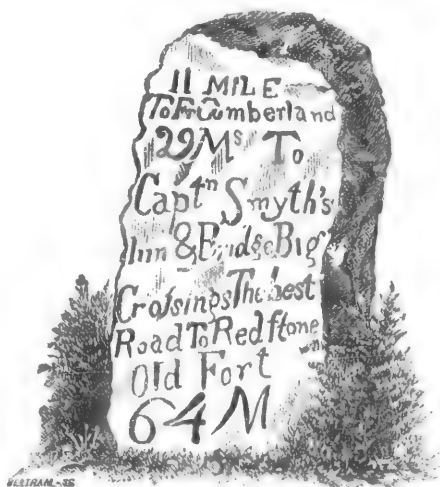 11 MILE
To Ft Cumberland
29 Ms To
Captn Smyth's
Inn & Bridge Big
Crossings The best
Road To Redſtone
Old Fort
64 M
BERTRAM-SS